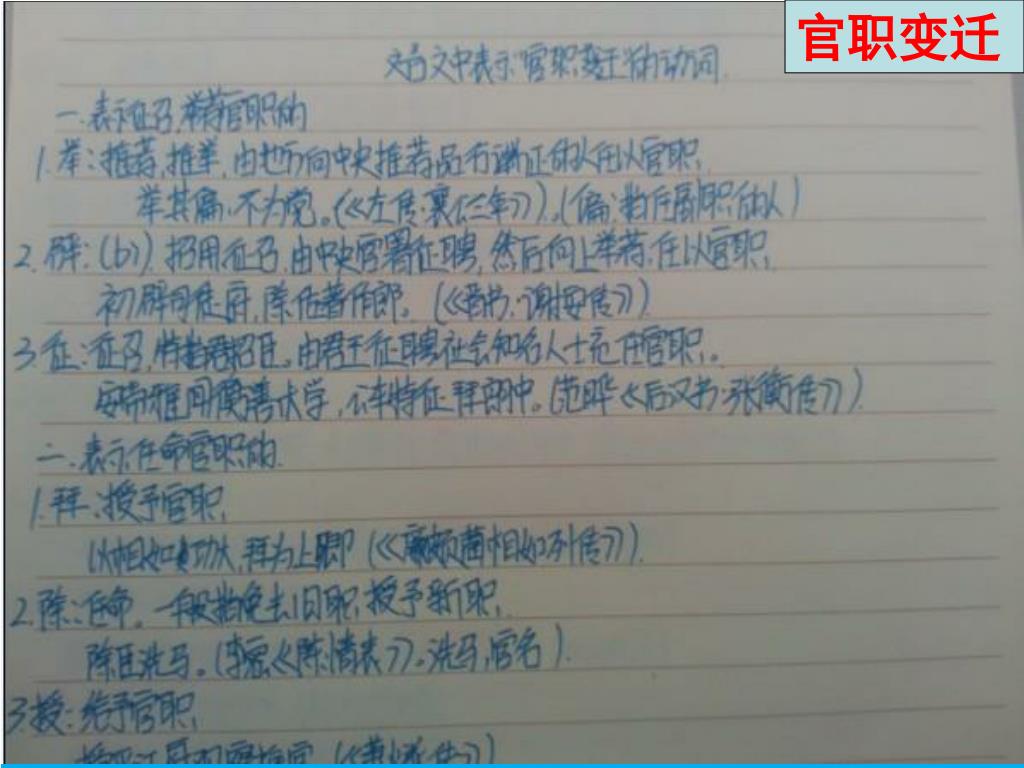 官职变迁
文言文中表示官职变迁的动词
一.表示征召,举荐官职的
1.举:推荐,推举,由地方向中央推荐品行端正的人任以官职,
举其偏,不为党。(《左传·襄公三年》)。(偏:指任副职的人)
2.辟:(bì).招用,征召,由中央官署征聘,然后向上举荐,任以官职,
初辟司徒府,除佐著作郎。(《晋书·谢安传》)
3.征:征召,特指君招臣。由君王征聘社会知名人士充任官职,。
安帝雅闻衡善术学,公车特征拜郎中。(范晔《后汉书·张衡传》)
二.表示任命官职的
1.拜:授予官职,
以相如功大,拜为上卿(《廉颇蔺相如列传》)
2.除:任命。一般指免去旧职,授予新职,
除臣洗马。(李密《陈情表》)。洗马,官名)
3.授:给予官职,